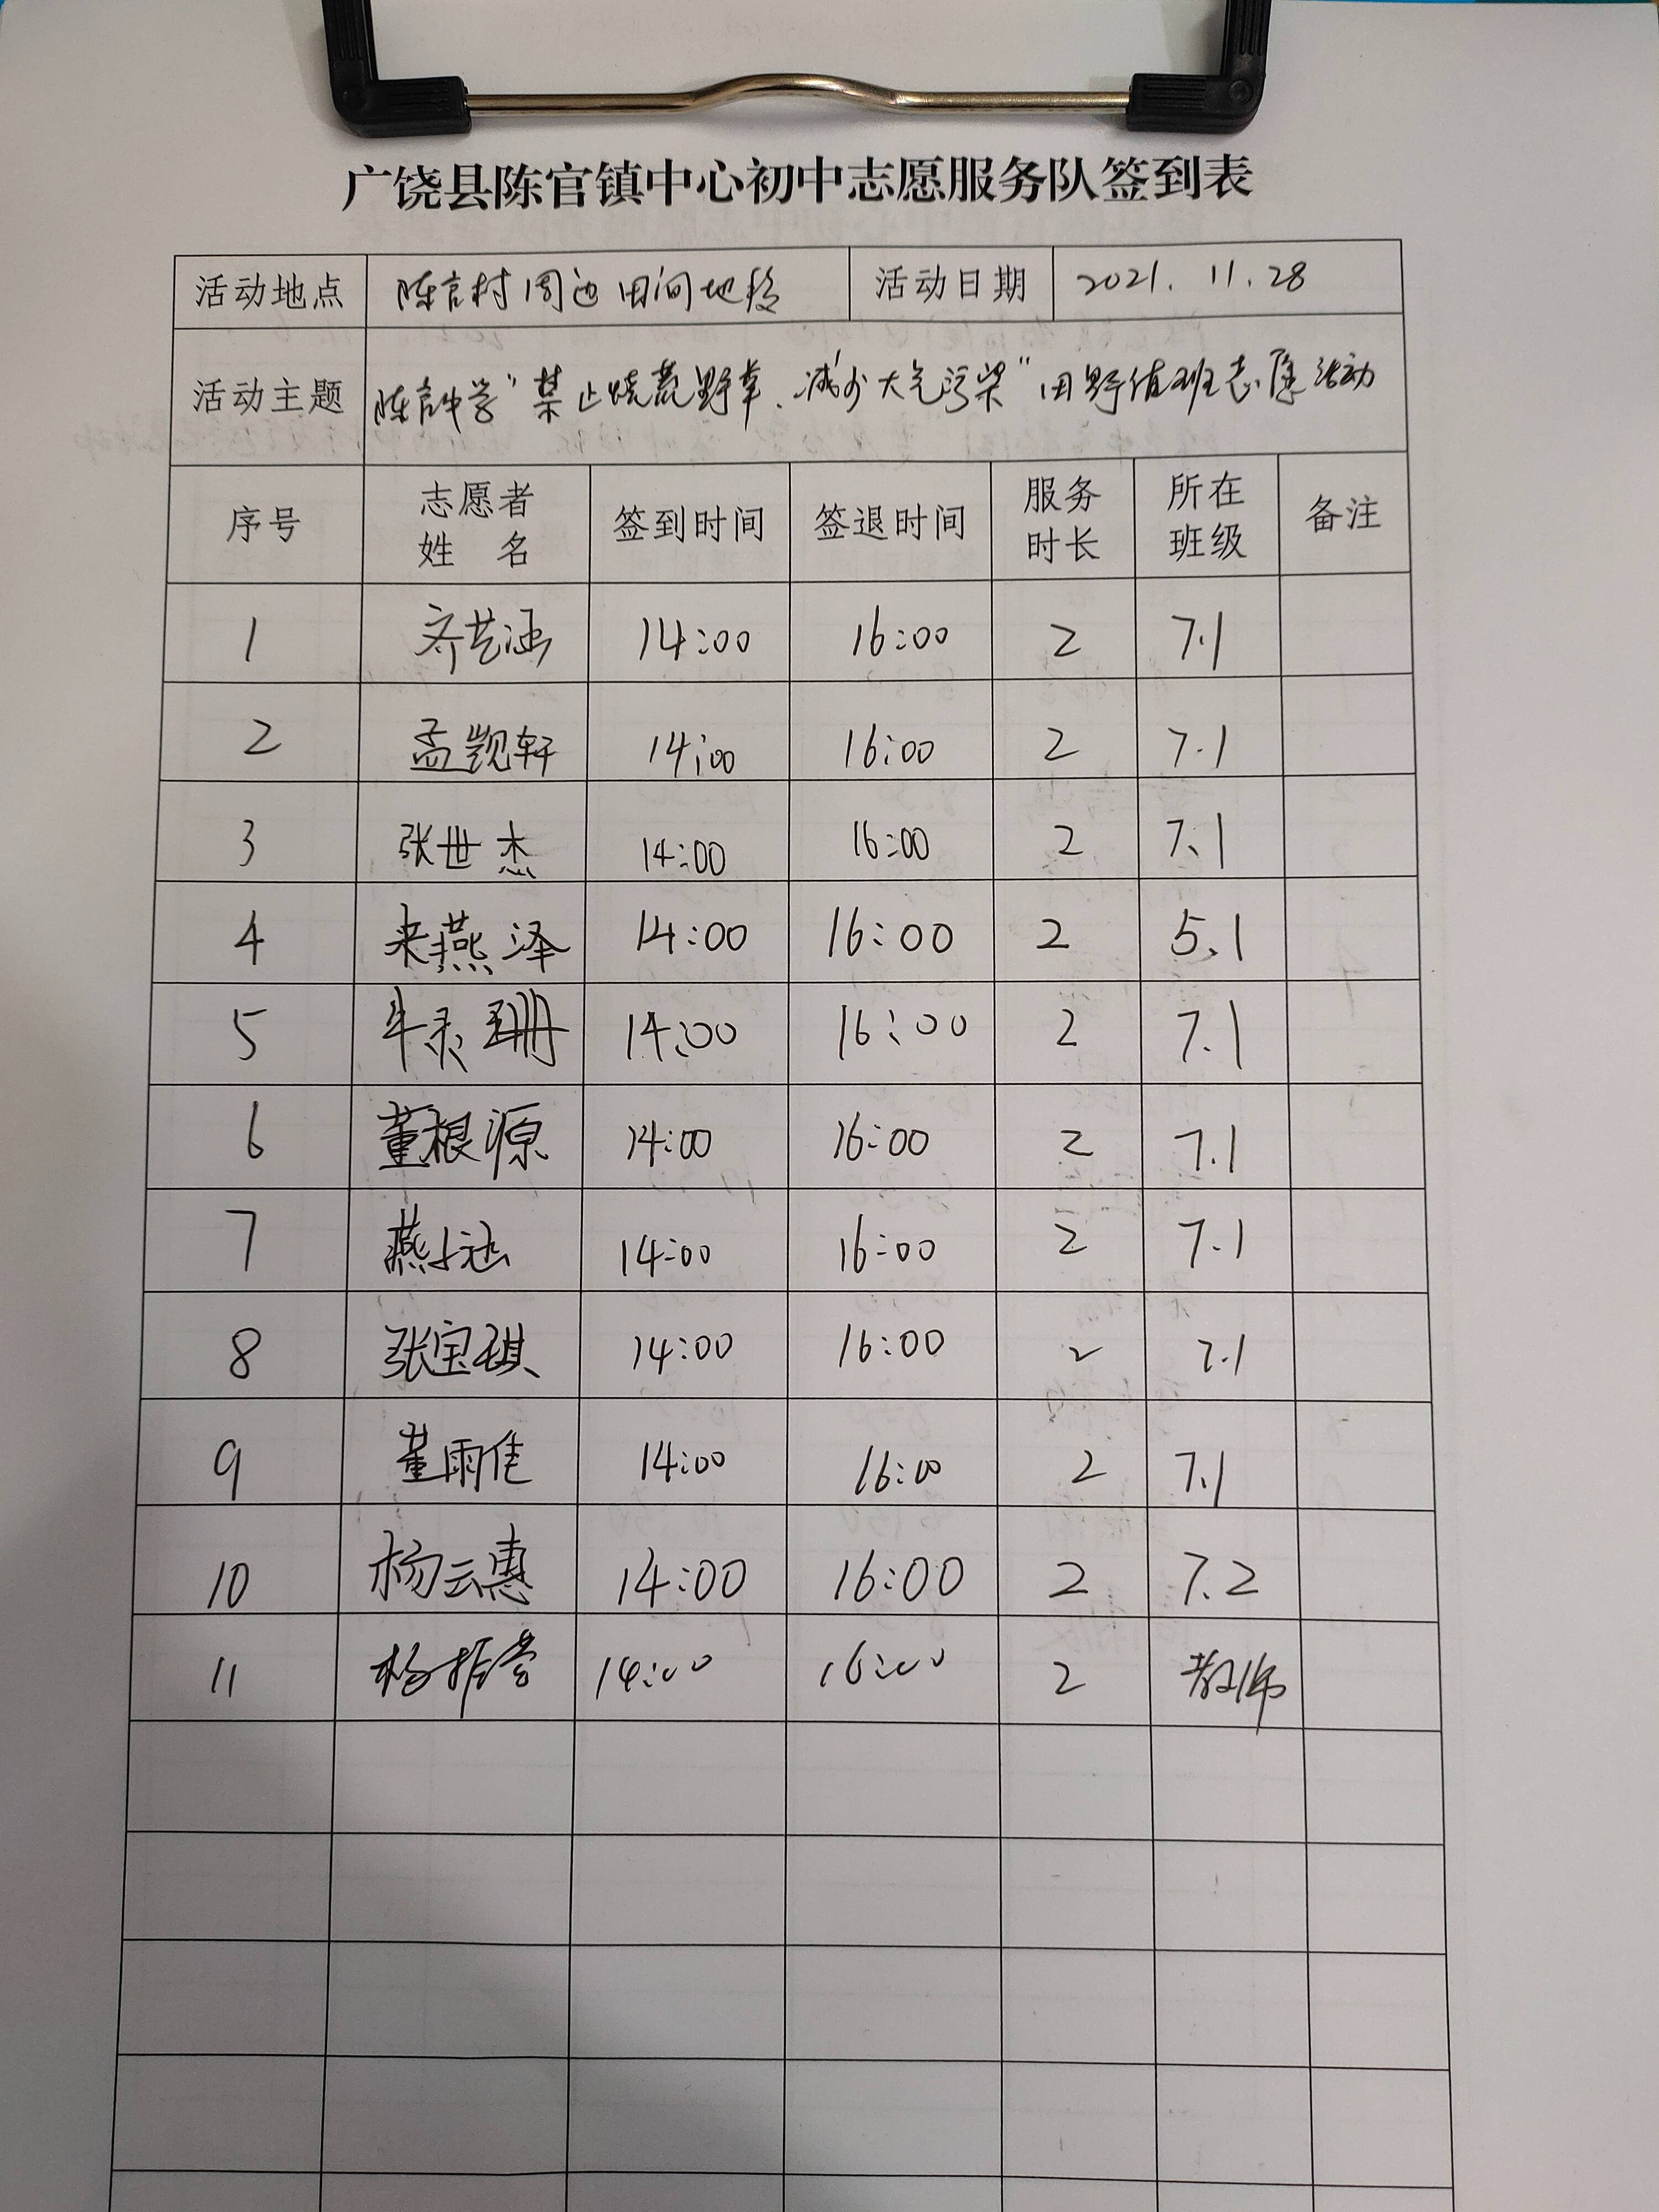 广饶县陈官镇中心初中志愿服务队签到表
活动地点 陈官村周边田间地段 活动日期 2021.11.28
活动主题 陈官中学"禁止烧荒野草、减少大气污染"田野值班志愿活动
序号 志愿者姓名 签到时间 签退时间 服务时长 所在班级 备注
1 齐艺涵 14:00 16:00 2 7.1
2 孟觊轩 14:00 16:00 2 7.1
3 张世杰 14:00 16:00 2 7.1
4 来燕泽 14:00 16:00 2 5.1
5 牛灵珊 14:00 16:00 2 7.1
6 董根源 14:00 16:00 2 7.1
7 燕 14:00 16:00 2 7.1
8 张宝琪 14:00 16:00 2 7.1
9 董雨佳 14:00 16:00 2 7.1
10 杨云惠 14:00 16:00 2 7.2
11 杨振 14:00 16:00 2 教师